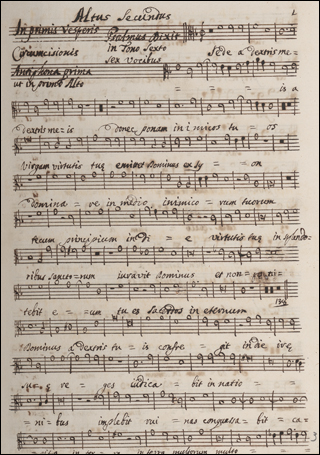 Altus Secundus 1
In primis Vesperis Psalmus Dixit
Circumcisionis in Tono Sexto Sede a dextris me=
Sex Vocibus
Antiphona prima
ut in primo Alto = = is a
dextris me=is donec ponam inimicos tu = os
virgam virtutis tuę emittet Dominus ex Sy = = on
domina = re in medio inimico = rum tuorum
tecum principium in di = e virtutis tuę in splendo=
ribus sanctorum iuravit dominus et non
tebit e = um tu es sacerdos in eternum
dominus a dextris tuis confre = git in die irę
suę re = ges iudica = bit in natio =
= ni = bus implebit rui = nas conquassabit ca=
in terra multorum